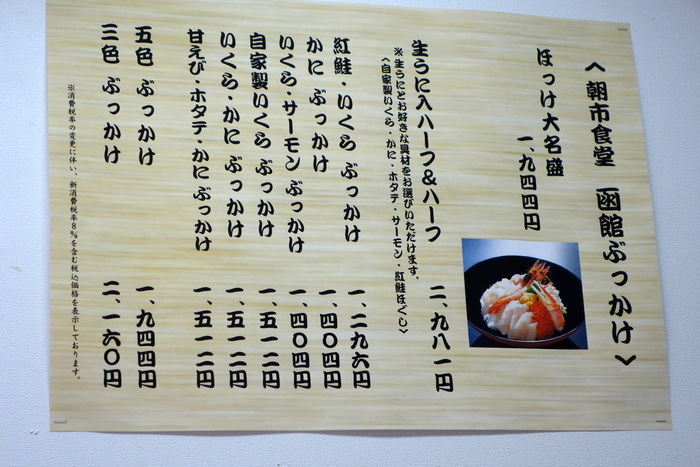 〈朝市食堂 函館ぶっかけ〉
ほっけ大名盛
一、九四四円
生うに入ハーフ&ハーフ 二、九八一円
※生うにとお好きな具材をお選びいただけます。
〈自家製いくら・かに・ホタテ・サーモン・紅鮭ほぐし〉
紅鮭・いくら ぶっかけ 一、二九六円
かに ぶっかけ 一、四〇四円
いくら・サーモン ぶっかけ 一、四〇四円
自家製いくら ぶっかけ 一、五一二円
いくら・かに ぶっかけ 一、五一二円
甘えび・ホタテ・かにぶっかけ 一、五一二円
五色 ぶっかけ 一、九四四円
三色 ぶっかけ 二、一六〇円
※消費税率の変更に伴い、新消費税率8%を含む税込価格を表示しております。